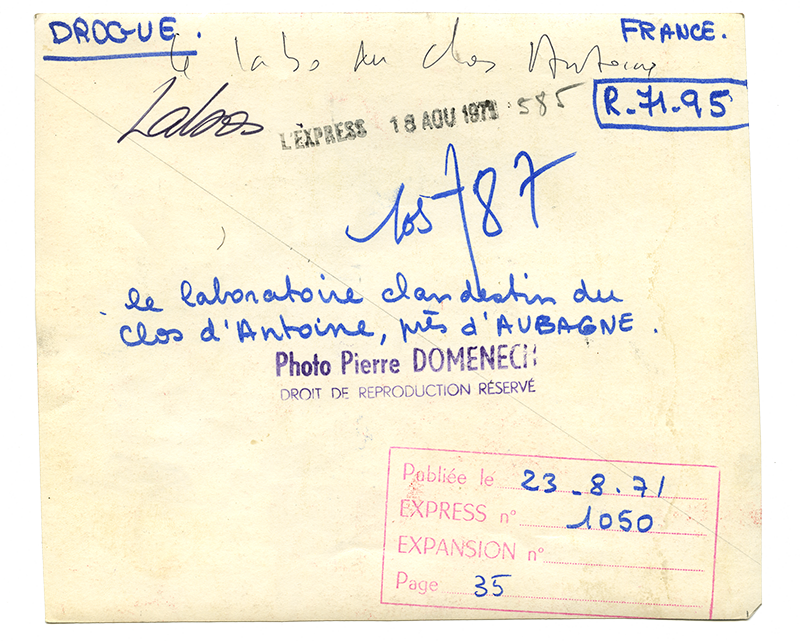 DROGUE.
FRANCE.
le labo du clos Antoine
R-71-95
Labos
L'EXPRESS 18 AOU 1971 585
787
le laboratoire clandestin du
clos d'Antoine, près d'AUBAGNE.
Photo Pierre DOMENECH
DROIT DE REPRODUCTION RÉSERVÉ
Publiée le 23-8-71
EXPRESS n° 1050
EXPANSION n°
Page 35